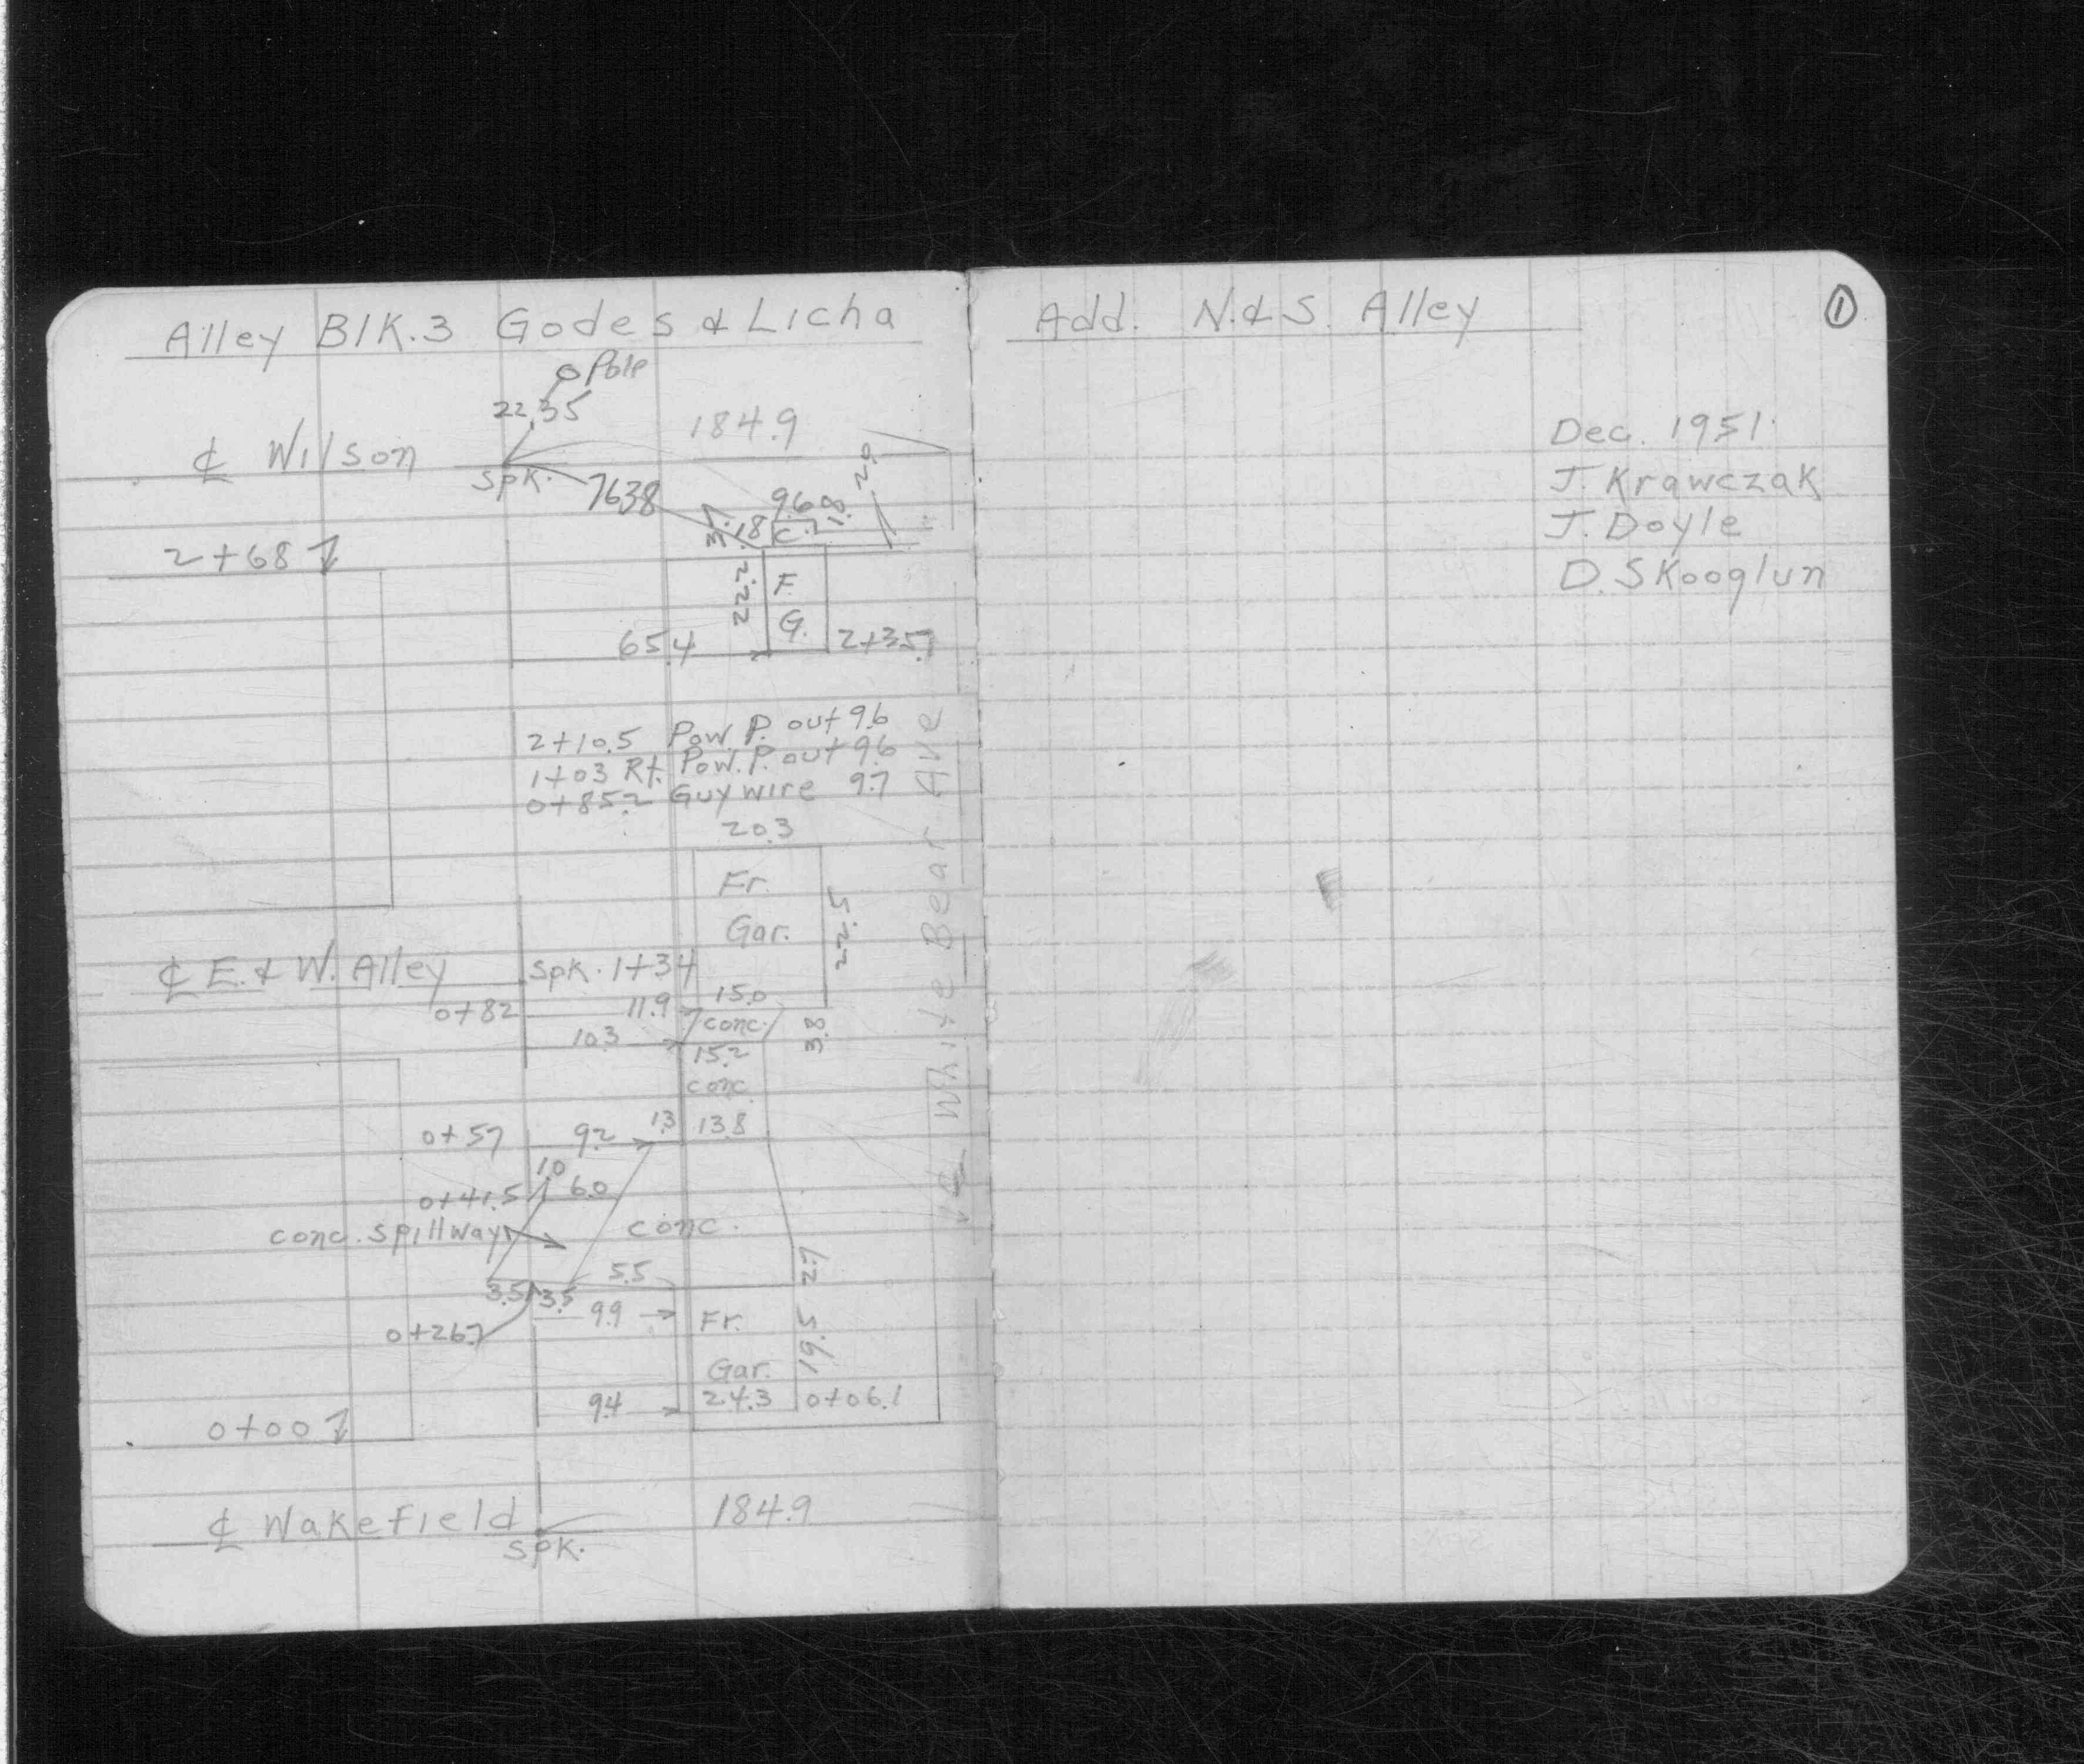 Alley Blk.3 Godes & Licha
Add. N. & S. Alley
1
Pole
22.35
184.9
℄ Wilson
Spk.
76.38
2.0
9.6
3.7
1.8
C.
1.8
2+68
22.2
F.
G.
65.4
2+35.7
2+10.5 Pow. P. out 9.6
1+03 Rt. Pow. P. out 9.6
0+85.2 Guy wire 9.7
20.3
Fr.
Gar.
22.5
℄ E. & W. Alley
Spk. 1+34
15.0
0+82
11.9
conc.
3.8
10.3
15.2
conc.
0+57
9.2
1.3
13.8
1.0
0+41.5
6.0
conc. spillway
conc.
5.5
2.7
3.5
3.5
9.9
Fr.
19.5
0+26.7
Gar.
9.4
24.3
0+06.1
0+00
℄ Wakefield
184.9
Spk.
℄ White Bear Ave
Dec. 1951.
J. Krawczak
J. Doyle
D. Skooglun